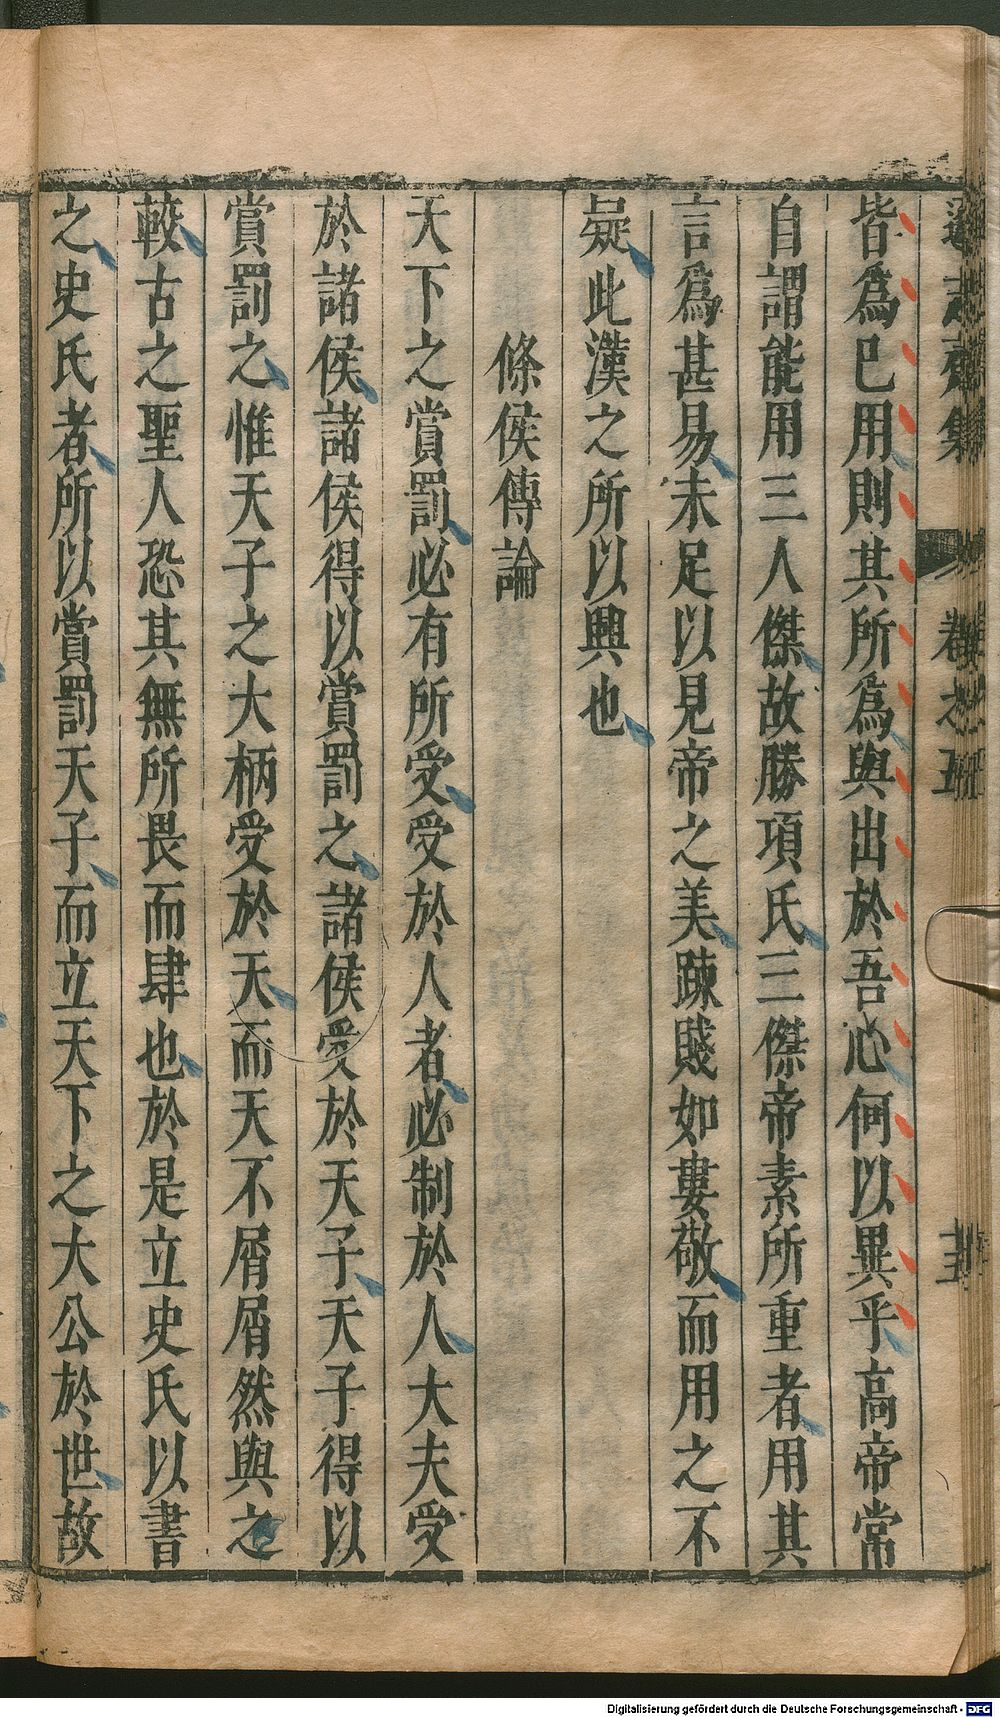 遜志齋集 卷之五
皆爲已用則其所爲與出於吾心何以異乎高帝常
自謂能用三人傑故勝項氏三傑帝素所重者用其
言爲甚易未足以見帝之美疎賤如婁敬而用之不
疑此漢之所以興也
條侯傳論
天下之賞罰必有所受受於人者必制於人大夫受
於諸侯諸侯得以賞罰之諸侯受於天子天子得以
賞罰之惟天子之大柄受於天而天不屑屑然與之
較古之聖人恐其無所畏而肆也於是立史氏以書
之史氏者所以賞罰天子而立天下之大公於世故
Digitalisierung gefördert durch die Deutsche Forschungsgemeinschaft - DFG